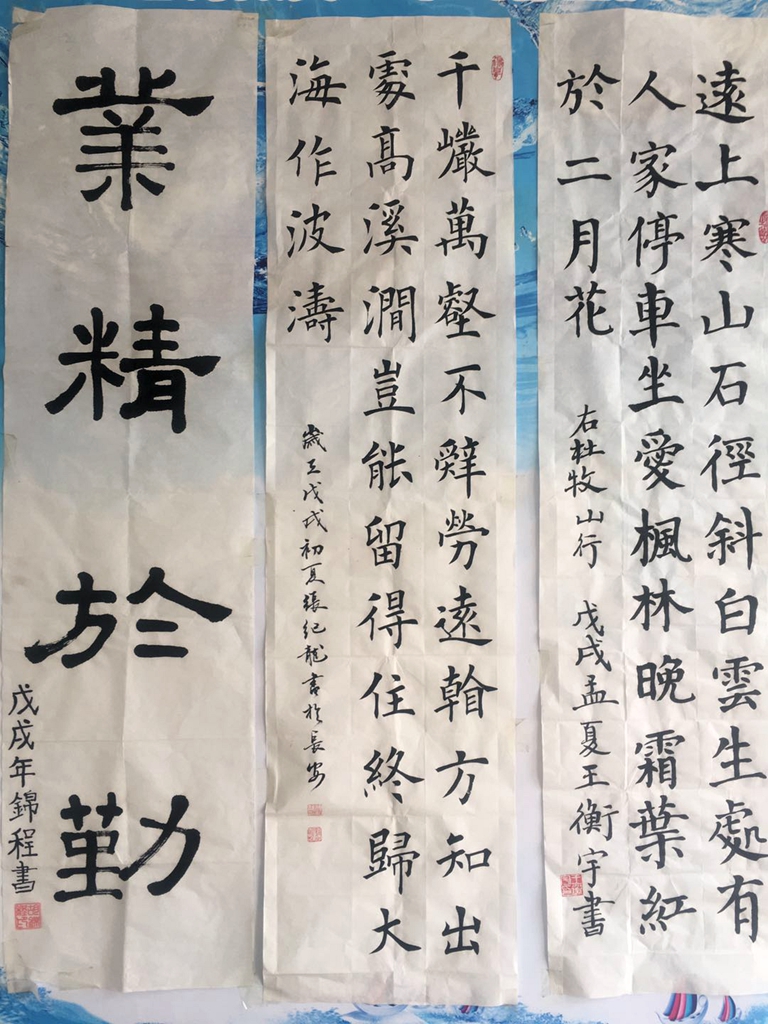 遠上寒山石徑斜白雲生處有
人家停車坐愛楓林晚霜葉紅
於二月花
右杜牧山行 戊戌孟夏王衡宇書
千巖萬壑不辭勞遠看方知出
處高溪澗豈能留得住終歸大
海作波濤
歲在戊戌初夏張紀龍書於長安
業精於勤
戊戌年錦程書